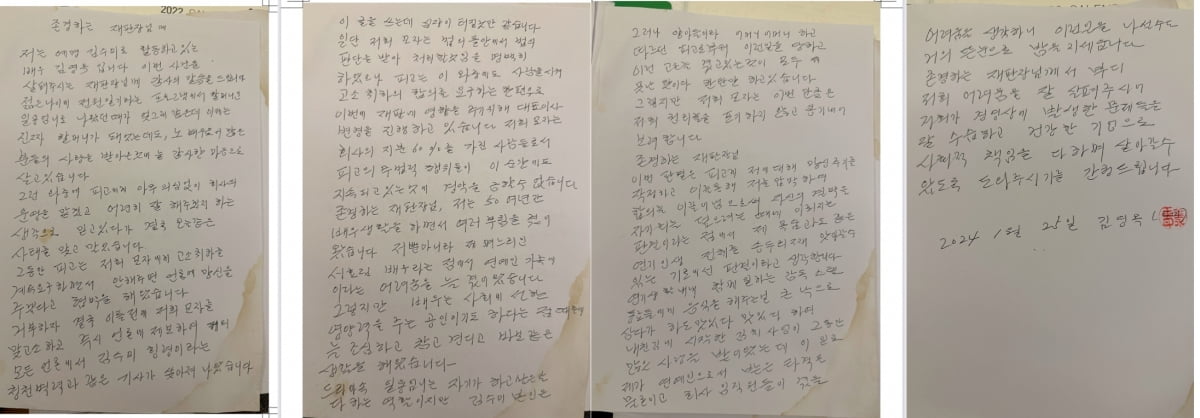 존경하는 재판장님께
저는 예명 김수미로 활동하고 있는
배우 김영옥 입니다 이번 사건을
살펴주시는 재판장님께 감사의 말씀을 드립니다
젊은나이에 전원일기라는 프로그램에서 할머니인
일용엄니로 나왔던때가 엊그제 같은데 이제는
진짜 할머니가 돼었는데도, 노배우로서 많은
분들의 사랑을 받아온것에 늘 감사한 마음으로
살고 있습니다
그런 와중에 피고에게 아무 의심없이 회사의
운영을 맡겼고 어련히 잘 해주겠지 하는
생각으로 믿고있다가 결국 오늘같은
사태를 맞고 말았습니다
그동안 피고는 저희 모자에게 고소취하를
계속요구하면서 안해주면 언론에 망신을
주겠다고 협박을 해왔습니다
거부하자 결국 이틀전에 저희 모자를
맞고소하고 즉시 언론에 제보하여
모든 언론에서 김수미 횡령이라는
청천벽력과 같은 기사가 쏟아져 나왔습니다
이 글을 쓰는데 심장이 터질것만 같습니다
일단 저희 모자는 법의 틀안에서 법의
판단을 받아 처리할것임을 명백히
하였으나 피고는 이 와중에도 사람을시켜
고소 취하와 합의를 요구하는 한편으로
이번에 재판에 영향을 주기위해 대표이사
변경을 진행하고 있습니다 저희 모자는
회사의 지분 60%를 가진 사람들로서
피고의 무법적 행위들이 이 순간에도
지속되고있는것에 경악을 금할수 없습니다
존경하는 재판장님, 저는 50여년간
배우생활을 하면서 여러 부침을 겪어
왔습니다 저뿐아니라 제 며느리인
서효림 배우라는 점에서 연예인 가족
이라는 어려움을 늘 겪어왔습니다
그렇지만 배우는 사회에 선한
영향력을 주는 공인이기도 하다는 점 때문에
늘 조심하고 참고 견디고 바보 같은
생각을 해왔습니다
드라마속 일용엄니는 자기가 하고싶은말
다 하는 역할이지만 김수미 본인은
그러나 말이
따르던 피고로부터 이런일을 당하고
이번 고소를 겪고있는것이 모두 제
못난 탓이다 한탄만 하고있습니다
그렇지만 저희 모자는 이번 만큼은
저희 권리를 포기하지 않고 용기내어
보려 합니다
존경하는 재판장님
이번 일은 피고가 저에대해 망신주기를
작정하고 이를통해 저를 압박하여
합의를 이끌어냄으로써 자신의 경박은
자기죄는 덮으려는 행태에 이뤄지는
판결이라는 점에서 제 목숨과도 같은
연기인생 전체를 송두리째 앗아갈수
있는 기로에선 판결이라고 생각합니다
연기생활내내 함께 일하는 감독 스탭
분들에게 음식을 해주는걸 큰 낙으로
삼다가 하도맛있다 맛있다 하여
내친김에 시작한 김치 사업이 그동안
많은 사랑을 받아왔는데 이 일로
제가 연예인으로서 받는 타격은
물론이고 회사 임직원들이 겪을
어려움을 생각하니 이런일을 나선후도
거의 뜬눈으로 밤을 지새웁니다
존경하는 재판장님께서 부디
저희 어려움을 잘 살펴주시어
저희가 경영상에 발생한 문제들을
잘 수습하고 건강한 기업으로
사회적 책임을 다하며 살아갈수
있도록 도와주시기를 간청드립니다
2024 1월 25일 김영옥
2022